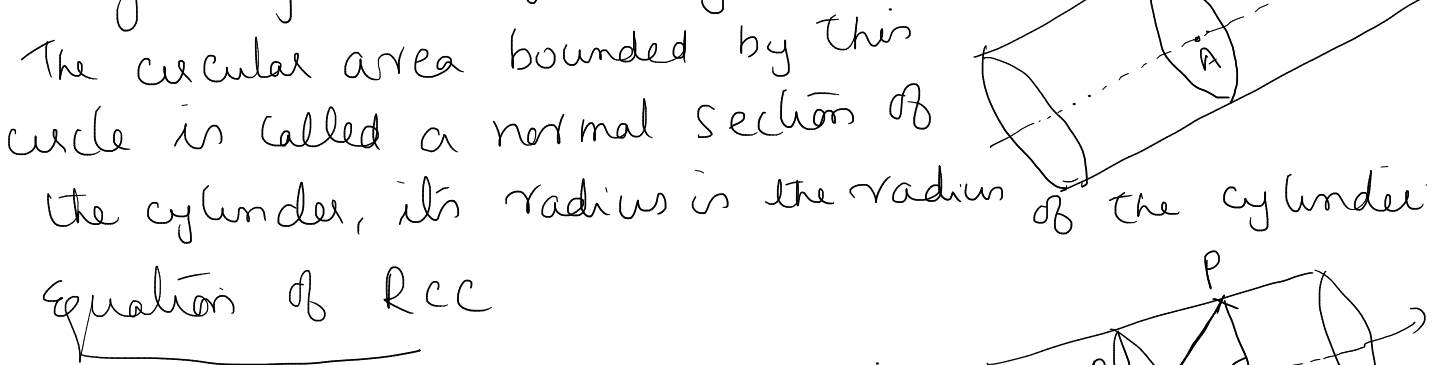 The circular area bounded by this
circle is called a normal section of
the cylinder, its radius is the radius of the cylinder
Equation of RCC
A
P